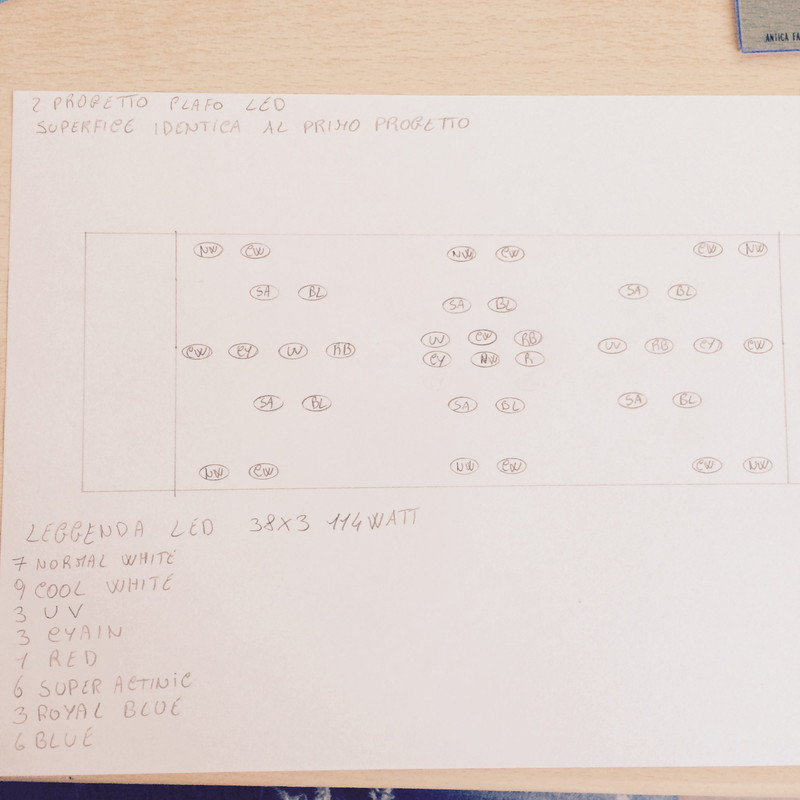 ANTICA FA
2 PROGETTO PLAFO LED
SUPERFICE IDENTICA AL PRIMO PROGETTO
NW CW NW CW CW NW
SA BL SA BL SA BL
CW CY UV RB UV CW RB UV RB CY CW
CY NW R
SA BL SA BL SA BL
NW CW NW CW CW NW
LEGGENDA LED 38X3 114 WATT
7 NORMAL WHITE
9 COOL WHITE
3 UV
3 CYAIN
1 RED
6 SUPER ACTINIC
3 ROYAL BLUE
6 BLUE